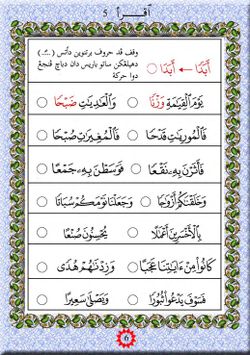 أقرأ 5
أَبَدًا ← أَبَدَا
وقف قد حروف برتنوين داتس ( ـًـ )
دهيلڠكن ساتو باريس دان دباچ ڤنجڠ
دوا حركة
يَوْمَ ٱلْقِيَٰمَةِ وَزْنًا
وَٱلْعَٰدِيَٰتِ ضَبْحًا
فَٱلْمُورِيَٰتِ قَدْحًا
فَٱلْمُغِيرَٰتِ صُبْحًا
فَأَثَرْنَ بِهِۦ نَقْعًا
فَوَسَطْنَ بِهِۦ جَمْعًا
وَخَلَقْنَٰكُمْ أَزْوَٰجًا
وَجَعَلْنَا نَوْمَكُمْ سُبَاتًا
بِٱلْأَخْسَرِينَ أَعْمَٰلًا
يُحْسِنُونَ صُنْعًا
كَانُوا۟ مِنْ ءَايَٰتِنَا عَجَبًا
وَزِدْنَٰهُمْ هُدًى
فَسَوْفَ يَدْعُوا۟ ثُبُورًا
وَيَصْلَىٰ سَعِيرًا
6